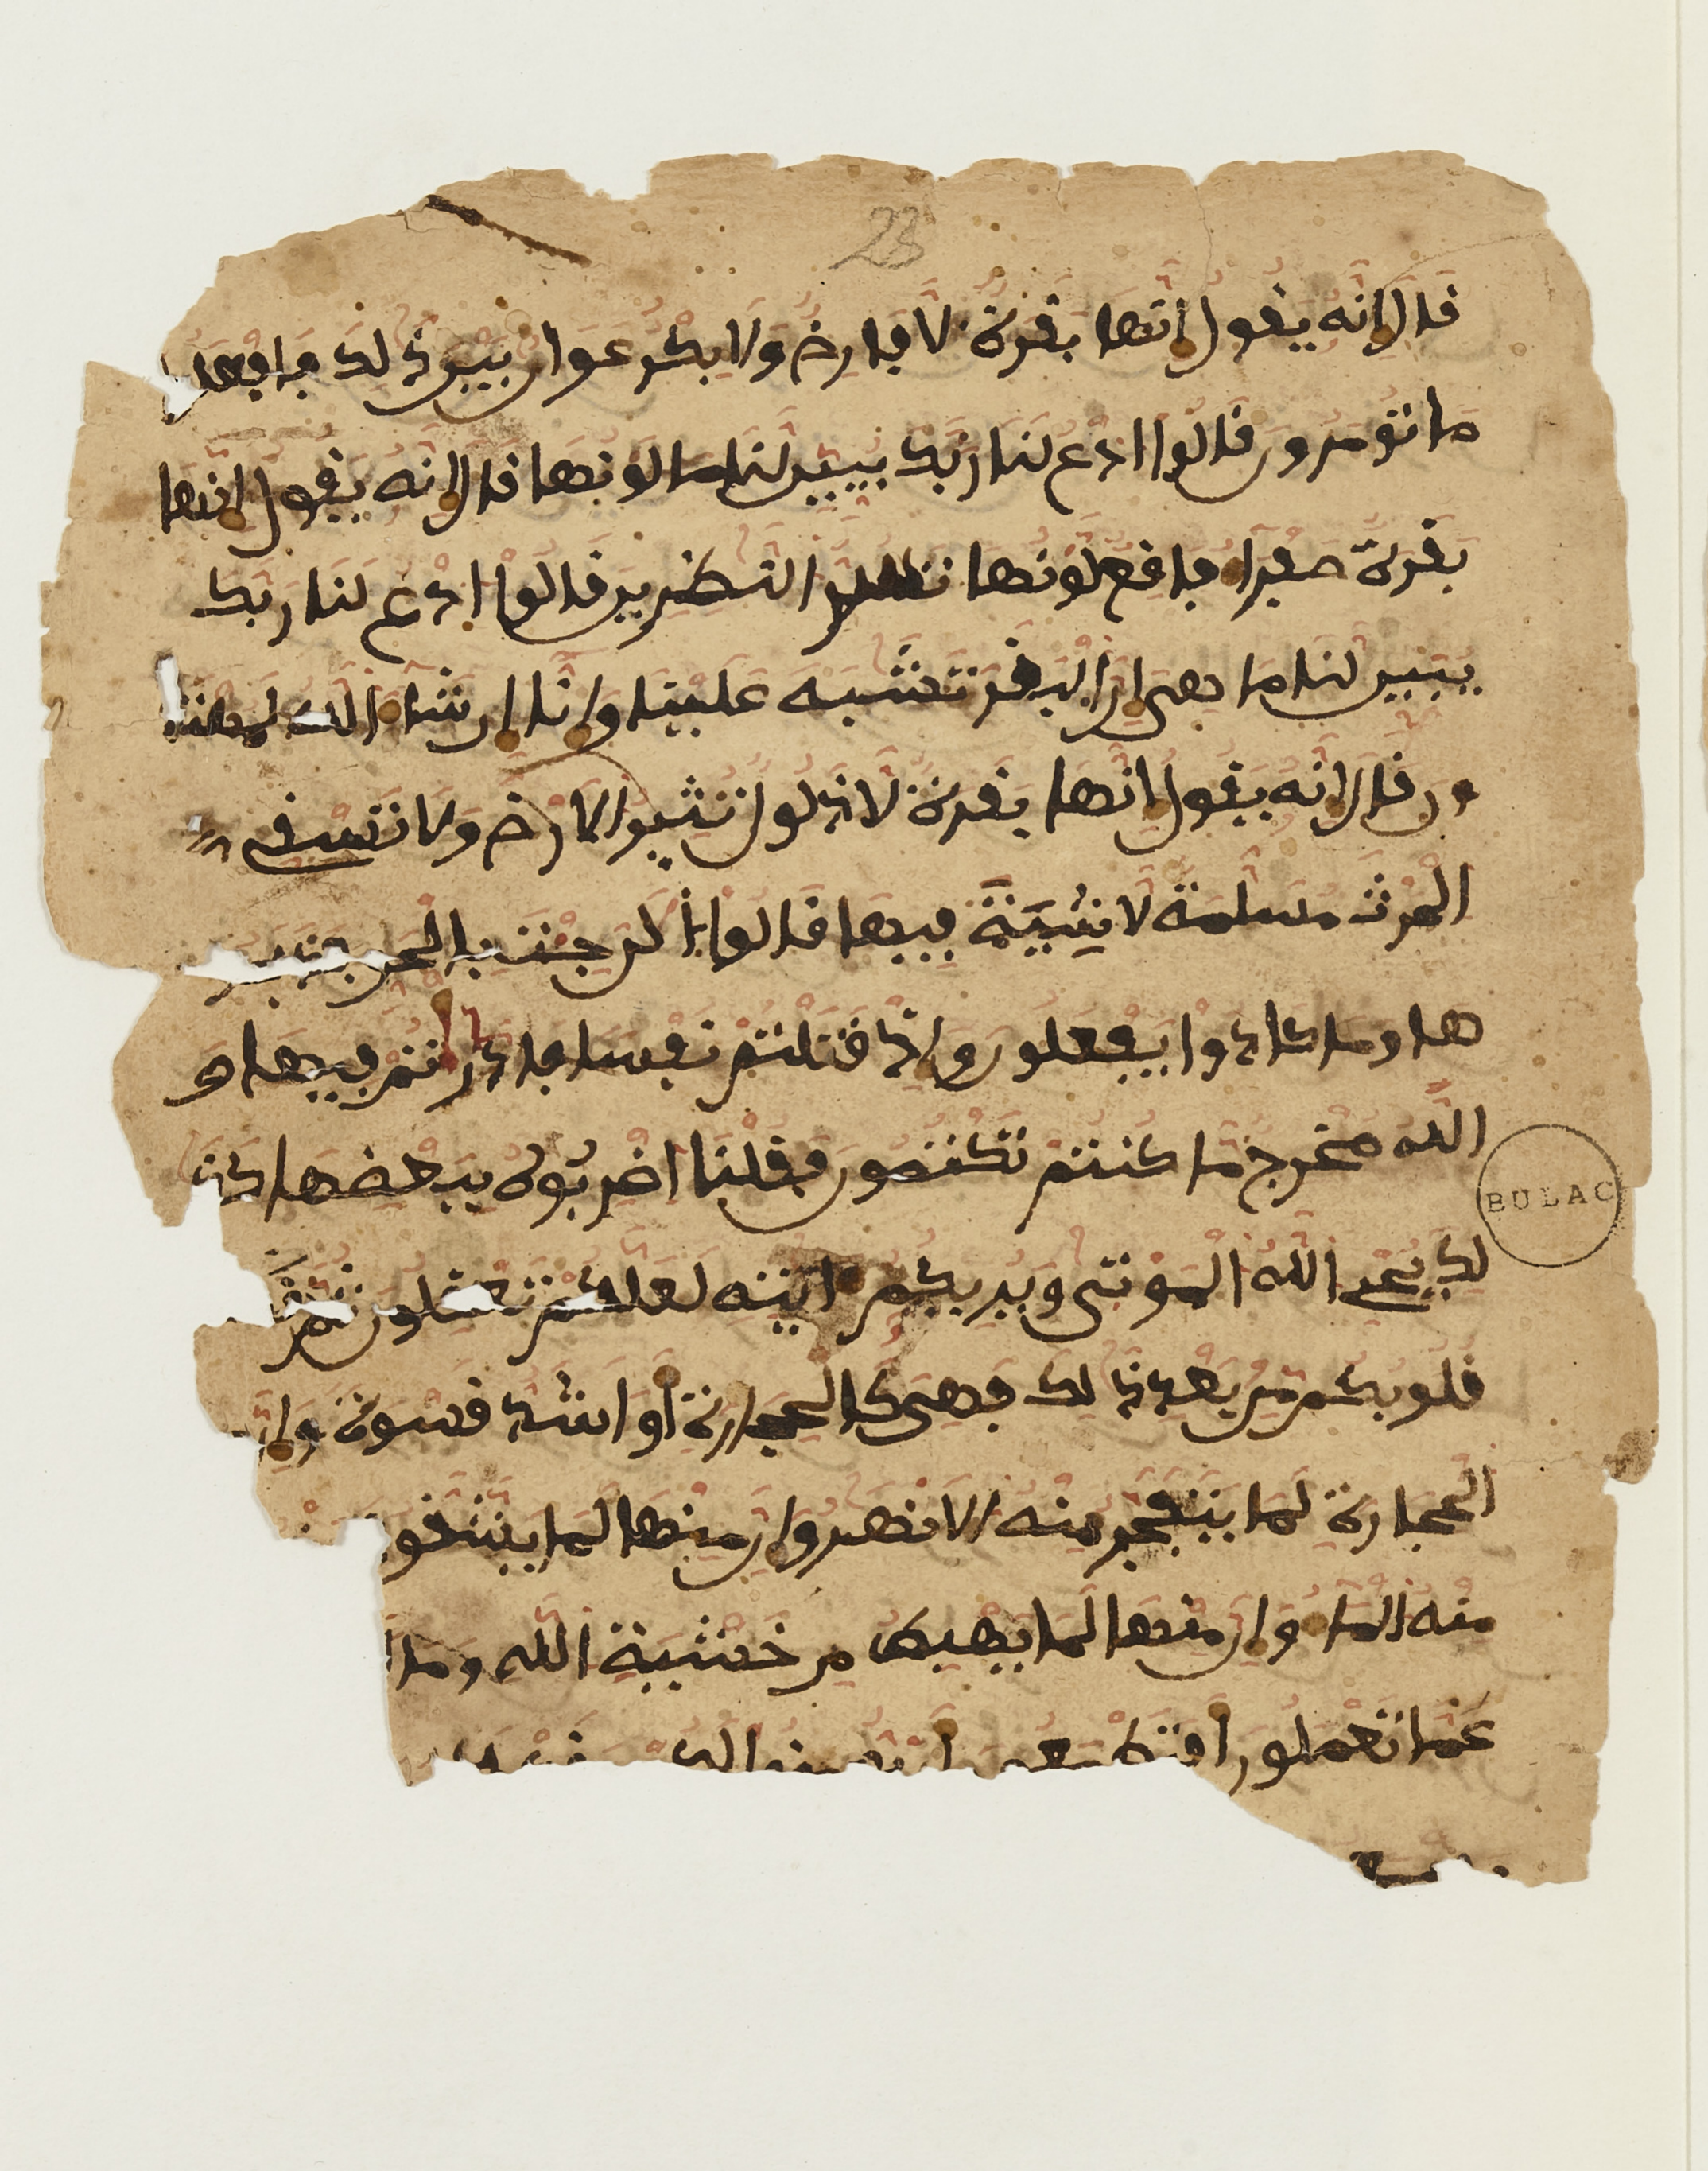 23
قال إنه يقول إنها بقرة لا فارض ولا بكر عوان بين ذلك فافعلوا
ما تؤمرون قالوا ادع لنا ربك يبين لنا ما لونها قال إنه يقول إنها
بقرة صفراء فاقع لونها تسر النظرين قالوا ادع لنا ربك
يبين لنا ما هي إن البقر تشبه علينا وإنا إن شاء الله لمهتد
ون قال إنه يقول إنها بقرة لا ذلول تثير الارض ولا تسقي
الحرث مسلمة لا شية فيها قالوا الن جئت بالحق فذبحو
ها وما كادوا يفعلون وإذ قتلتم نفسا فادارأتم فيها و
الله مخرج ما كنتم تكتمون فقلنا اضربوه ببعضها كذ
لك يحي الله الموتى ويريكم ءايته لعلكم تعقلون ثم
قلوبكم من بعد ذلك فهي كالحجارة أو اشد قسوة وإن
الحجارة لما يتفجر منه الانهر وإن منها لما يشقق
منه الماء وإن منها لما يهبط من خشية الله وما
عما تعملون أفتطمعون
BULAC